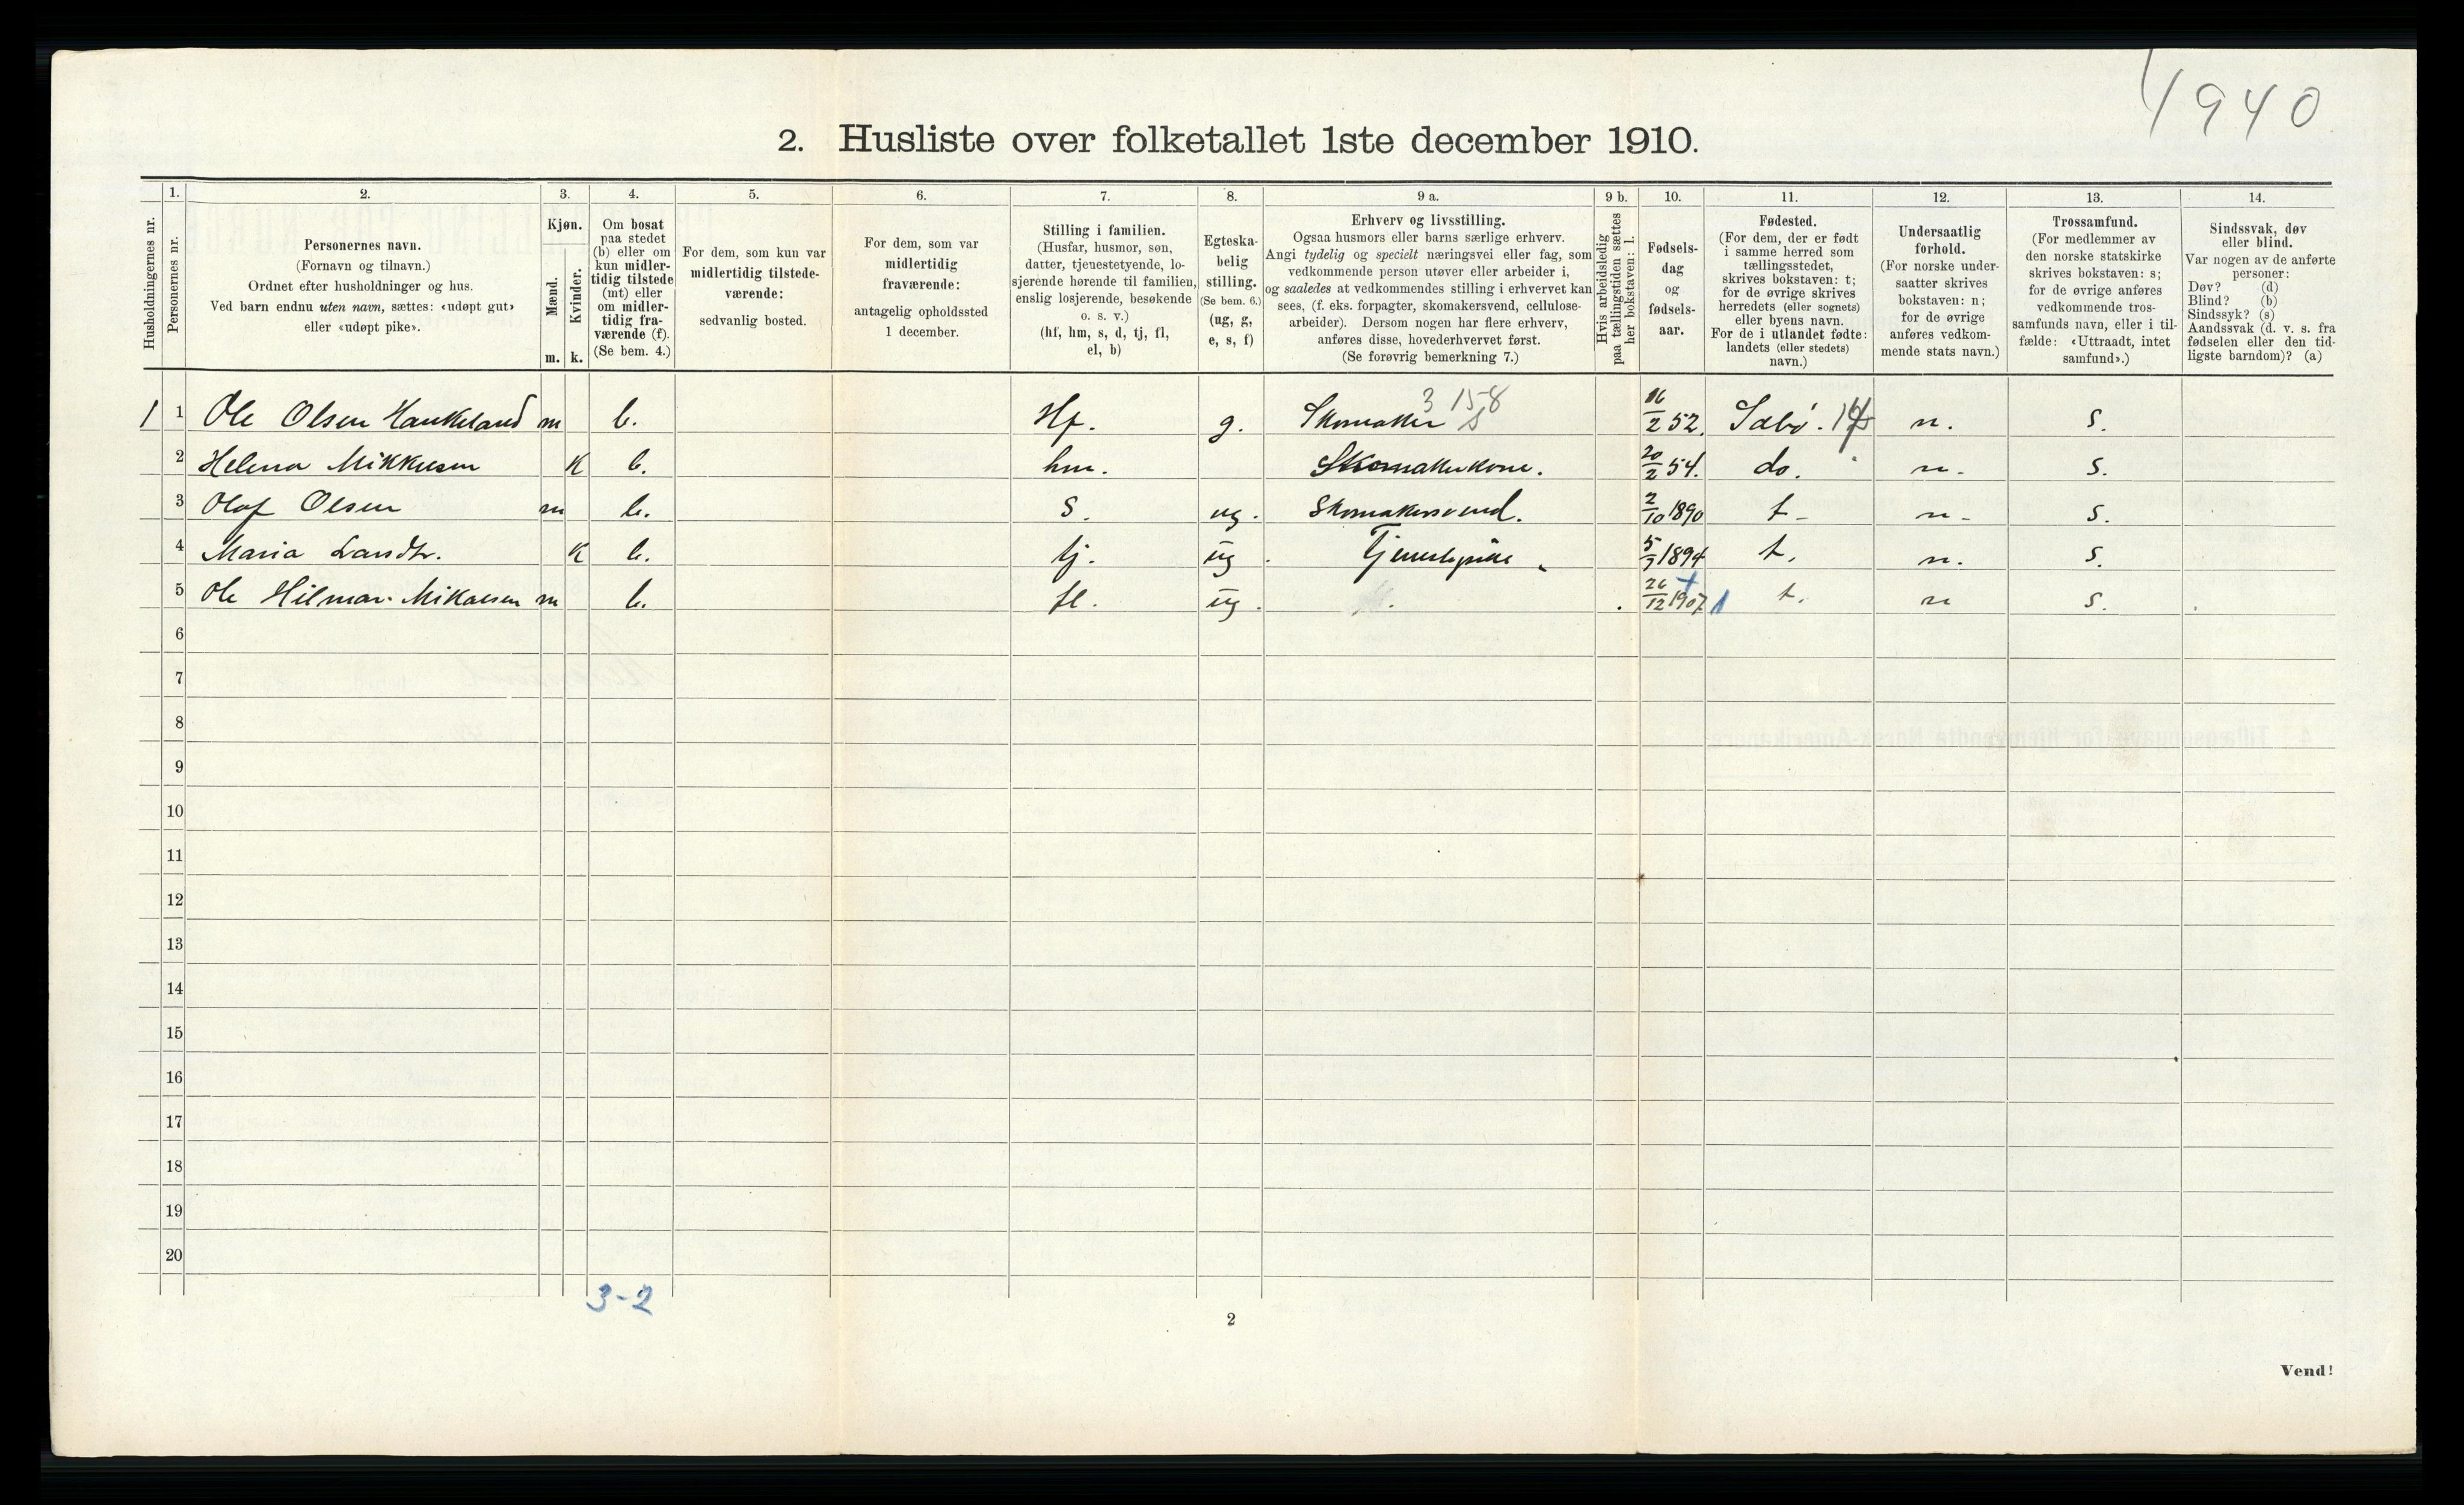 4940
2. Husliste over folketallet 1ste december 1910.
1. 2. 3. 4. 5. 6. 7. 8. 9 a. 9 b. 10. 11. 12. 13. 14.
Husholdningernes nr.
Personernes nr.
Personernes navn.
(Fornavn og tilnavn.)
Ordnet efter husholdninger og hus.
Ved barn endnu uten navn, sættes: «udøpt gut»
eller «udøpt pike».
Kjøn.
Mænd.
Kvinder.
m. k.
Om bosat
paa stedet
(b) eller om
kun midler-
tidig tilstede
(mt) eller
om midler-
tidig fra-
værende (f).
(Se bem. 4.)
For dem, som kun var
midlertidig tilstede-
værende:
sedvanlig bosted.
For dem, som var
midlertidig
fraværende:
antagelig opholdssted
1 december.
Stilling i familien.
(Husfar, husmor, søn,
datter, tjenestetyende, lo-
sjerende hørende til familien,
enslig losjerende, besøkende
o. s. v.)
(hf, hm, s, d, tj, fl,
el, b)
Egteska-
belig
stilling.
(Se bem. 6.)
(ug, g,
e, s, f)
Erhverv og livsstilling.
Ogsaa husmors eller barns særlige erhverv.
Angi tydelig og specielt næringsvei eller fag, som
vedkommende person utøver eller arbeider i,
og saaledes at vedkommendes stilling i erhvervet kan
sees, (f. eks. forpagter, skomakersvend, cellulose-
arbeider). Dersom nogen har flere erhverv,
anføres disse, hovederhvervet først.
(Se forøvrig bemerkning 7.)
Hvis arbeidsledig
paa tællingstiden sættes
her bokstaven: l.
Fødsels-
dag
og
fødsels-
aar.
Fødested.
(For dem, der er født
i samme herred som
tællingsstedet,
skrives bokstaven: t;
for de øvrige skrives
herredets (eller sognets)
eller byens navn.
For de i utlandet fødte:
landets (eller stedets)
navn.)
Undersaatlig
forhold.
(For norske under-
saatter skrives
bokstaven: n;
for de øvrige
anføres vedkom-
mende stats navn.)
Trossamfund.
(For medlemmer av
den norske statskirke
skrives bokstaven: s;
for de øvrige anføres
vedkommende tros-
samfunds navn, eller i til-
fælde: «Uttraadt, intet
samfund».)
Sindssvak, døv
eller blind.
Var nogen av de anførte
personer:
Døv? (d)
Blind? (b)
Sindssyk? (s)
Aandssvak (d. v. s. fra
fødselen eller den tid-
ligste barndom)? (a)
3 158
1 1 Ole Olsen Haukeland m b. Hf. g. Skomaker 16/2 52. Sæbø. n. s.
2 Helena Mikkelsen K b. hm. Skomakerkone. 20/2 54. do. n. s.
3 Olaf Olsen m b. s. ug. Skomakersvend. 2/10 1890 t. n. s.
4 Maria Landtv. K b. tj. ug. Tjenestepike. 5/3 1894 t. n. s.
5 Ole Hilmar Mikalsen m b. fl. ug. 26/12 1907 1 t. n s.
6
7
8
9
10
11
12
13
14
15
16
17
18
19
20
3-2
2
Vend!